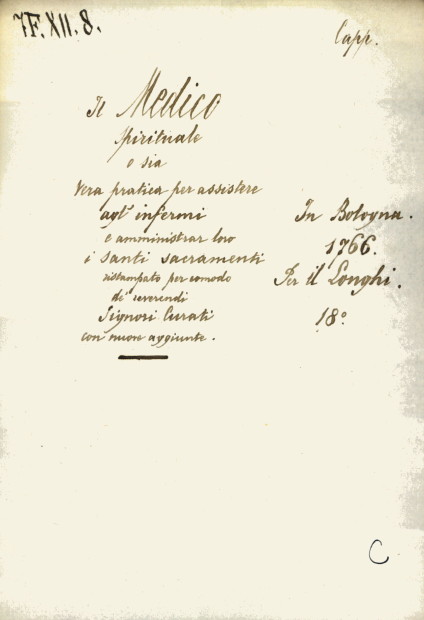 7F.XII.8.
Capp.
Il Medico
Spirituale
o sia
Vera pratica per assistere
agl' infermi
e amministrar loro
i santi sacramenti
ristampato per comodo
di reverendi
Signori Curati
con nuove aggiunte.
In Bologna.
1766.
Per il Longhi.
18°
C